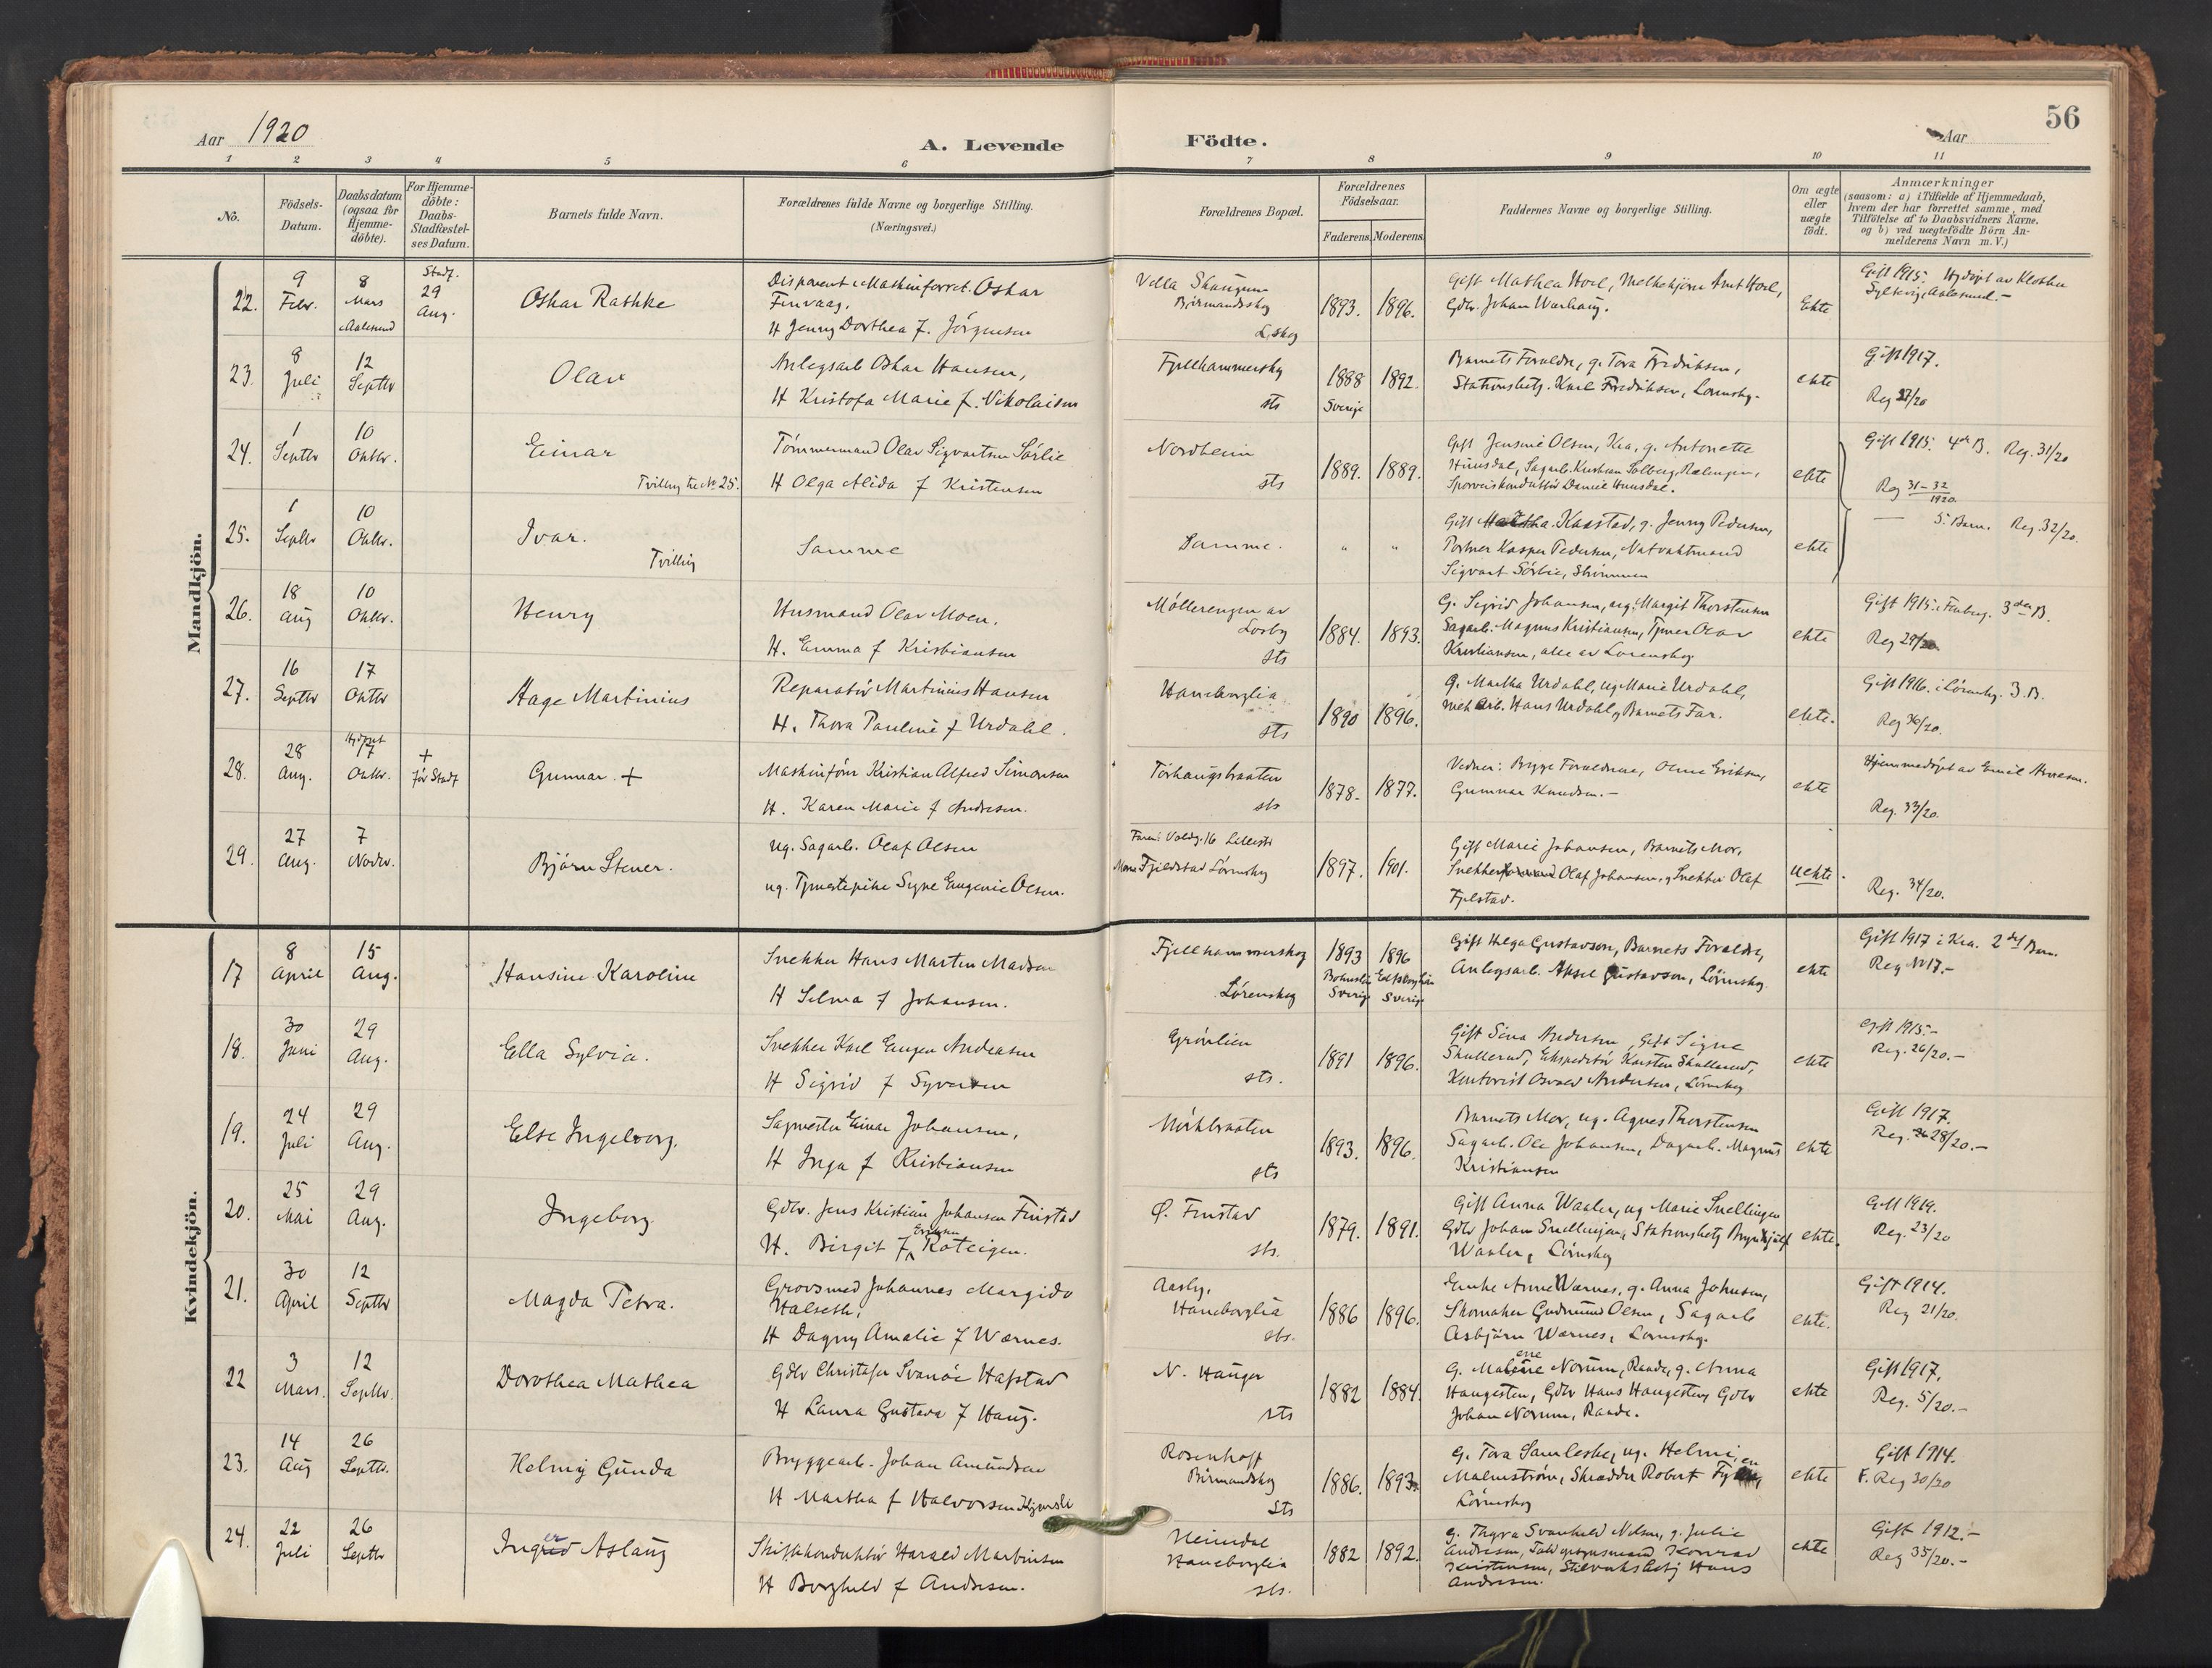 56
Aar 1920
A. Levende Födte.
Aar
1 2 3 4 5 6 7 8 9 10 11
No.
Födsels-Datum.
Daabsdatum (ogsaa for Hjemme-döbte).
For Hjemme-döbte: Daabs-Stadfæstel-ses Datum.
Barnets fulde Navn.
Forældrenes fulde Navne og borgerlige Stilling.
(Næringsvei.)
Forældrenes Bopæl.
Forældrenes Födselsaar.
Faderens. Moderens.
Faddernes Navne og borgerlige Stilling.
Om ægte eller uægte födt.
Anmærkninger
(saasom: a) i Tilfælde af Hjemmedaab,
hvem der har forrettet samme, med
Tilföielse af to Daabsvidners Navne.
og b) ved uægtefödte Börn An-
melderens Navn m.V.)
Mandkjön.
22. 9 Febr. 8 Mars Aalesund Stadf. 29 Aug.
Oskar Rathke
Disponent i Maskinforret. Oskar
Finvaag.
H Jenny Dorthea f. Jörgensen
Villa Skaugum
L.skog
1893. 1896.
Gdbr. Johan Warhaug.
Ekte
Gift 1915. Hj.döpt av
Aalesund.-
23. 8 Juli 12 Septbr
Olav
Anlegsarb Oskar Hansen,
H Kristofa Marie f. Nikolaisen
Fjellhammersky
sts
1888 Sverige 1892.
Barnets Forældre, g. Tora Fredriksen,
Stationsbetj. Karl Fredriksen, Lørensky.
ekte
Gift 1917.
Reg 27/20
24. 1 Septbr 10 Oktbr.
Einar
Tvilling til No 25.
Tömmermand Olav Sigvartsen Sörlie
H Olga Alida f Kristensen
Nordheim
sts
1889. 1889.
Gift Jensine Olsen, Kra, g. Antonette
Huusdal, Sagarb. Kristian Solberg, Rælingen,
Sporveiskonduktör Daniel Huusdal.
ekte
Gift 1915. 4de B. Reg. 31/20
Reg 31-32
1920.
25. 1 Septbr 10 Oktbr.
Ivar.
Tvilling
Samme
Samme.
" "
Gift Kaastad, g. Jenny Pedersen,
Portner Kasper Pedersen, Natvaktmand
Sigvart Sörlie, Strömmen
ekte
— 5. Barn. Reg. 32/20.
26. 18 Aug 10 Oktbr.
Henry
Husmand Olav Moen.
H. Emma f Kristiansen
Möllerengen av
Losby
sts
1884. 1893.
G. Sigrid Johansen, ug. Margit Thorstensen
Sagarb. Magnus Kristiansen, Olav
Kristiansen, alle av Lorenskog
ekte
Gift 1915. 3die B.
Reg 29/20
27. 16 Septbr 17 Oktbr
Hage Martinius
Reparatör Martinius Hansen
H. Thora Pauline f Urdahl.
Haneborglia
sts
1890 1896.
g. Martha Urdahl, ug Marie Urdahl,
mek arb. Hans Urdahl, Barnets Far.
ekte.
Gift 1916. i Lörensky. 3. B.
Reg 36/20.
28. 28 Aug. Hj.döpt 17 Oktbr. + för Stadf
Gunnar. +
Maskinförer Kristian Alfred Simonsen
H. Karen Marie f Andresen.
Torhaugbraaten
sts
1878. 1877.
Vidner: Begge Forældrene, Eriksen,
Gunnar Knudsen.-
ekte
Hjemmedöpt av Emil
Reg. 33/20.
29. 27 Aug. 7 Novbr.
Björn Stener.
ug. Sagarb. Olaf Olsen
ug. Tjenestepike Signe Eugenie Olsen.
Faren: Voldg. 16 Lillestr
Moren Fjeldstad Lörensky
1897. 1901.
Gift Marie Johansen, Barnets Mor,
Snekker Olaf Johansen, g Snekker Olaf
Fjelstad.
uekte.
Reg. 34/20.
Kvindekjön.
17 8 April 15 Aug.
Hansine Karoline
Snekker Hans Martin Madsen
H Selma f Johansen.
Fjellhammerskog
Lörenskog
1893 Sverige 1896 Sverige
Gift Helga Gustavson, Barnets Forældre,
Anlegsarb. Aksel Gustavson, Lörensky.
ekte
Gift 1917 i Kra. 2det Barn.
Reg No 17.-
18. 30 Juni 29 Aug.
Ella Sylvia.
Snekker Karl Eugen Andersen
H Sigrid f Syversen
Grönlien
sts.
1891 1896.
Gift Sina Andersen, Gift Signe
Skullerud, Ekspeditör Karsten Skullerud,
Kontorist Osvald Andersen, Lörensky
ekte
Gift 1915-
Reg. 26/20.-
19. 24 Juli 29 Aug.
Else Ingeborg.
Sagmester Einar Johansen,
H Inga f Kristiansen
Mörkbraaten
sts
1893. 1896.
Barnets Mor, ug. Agnes Thorstensen
Sagarb. Ole Johansen, Dagarb. Magnus
Kristiansen
ekte
Gift 1917.
Reg. 28/20.-
20. 25 Mai 29 Aug.
Ingeborg
Gdbr. Jens Kristian Johansen Finstad
H. Birgit f Eriksen Roteigen.
Ö. Finstad
sts.
1879. 1891.
Gift Anna Waaler, ug Marie Snellingen
Gdbr Johan Snellingen, Stationsbetj Brynhjulf
Waaler, Lörensky
ekte.
Gift 1919.
Reg. 23/20
21. 30 April 12 Septbr
Magda Petra.
Grovsmed Johannes Margido
Halseth,
H Dagny Amalie f Wærnes.
Aasly,
Haneborglia
sts.
1886 1896.
Enke Anne Wærnes, g. Anna Johnsen,
Skomaker Gudmund Olsen, Sagarb
Asbjörn Wærnes, Lörensky.
ekte.
Gift 1914.
Reg 21/20.
22 3 Mars. 12 Septbr.
Dorothea Mathea
Gdbr Christofer Svanöe Hafstad
H Laura Gustava f Haug.
N. Hauger
sts
1882 1884.
G. Malene Norum, Raade, g. Anna
Haugesten, Gdbr Hans Haugesten, Gdbr
Johan Norum, Raade.
ekte
Gift 1917,
Reg. 5/20.-
23. 14 Aug 26 Septbr.
Helmy Gunda
Bryggearb. Johan Amundsen
H Martha f Halvorsen
Rosenhoff
sts
1886. 1893.
g. Tora ug. Helmi
Malmström, Skrædder Robert
Lörensky
ekte
Gift 1914.
F. Reg 30/20
24. 22 Juli 26 Septbr
Inger Aslaug
Skiftkonduktör Harald Martinsen
H Borghild f Andresen.
Heimdal
Haneborglia
sts.
1882 1892.
g. Thyra Svanhild Nilsen, g. Julie
Andresen, Konrad
Kristensen, Hans
Andresen.
ekte
Gift 1912.-
Reg 35/20.-